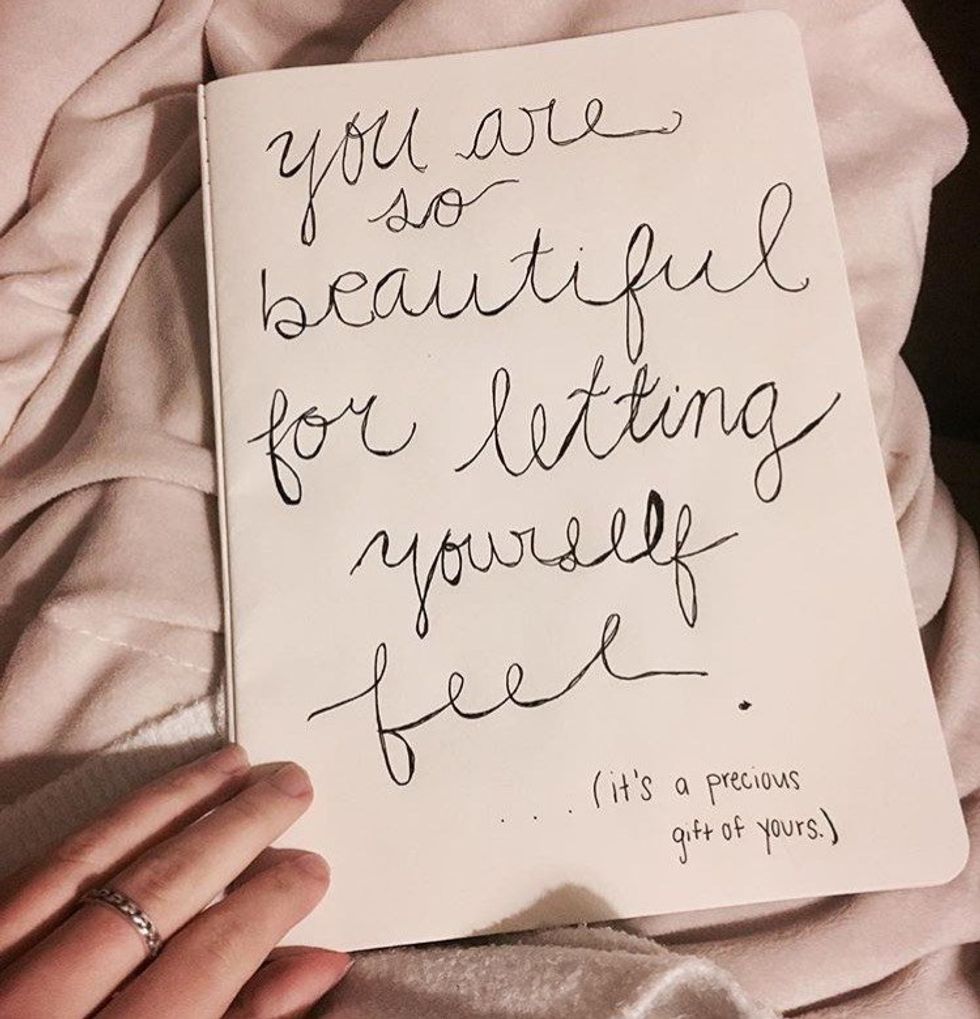 you are
so
beautiful
for letting
yourself
feel.
....(it's a precious
gift of yours.)